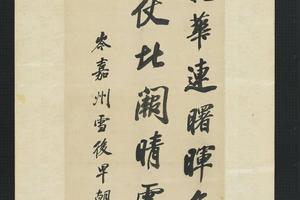 華連曙暉
仗北闕晴雪
岑嘉州雪後早朝